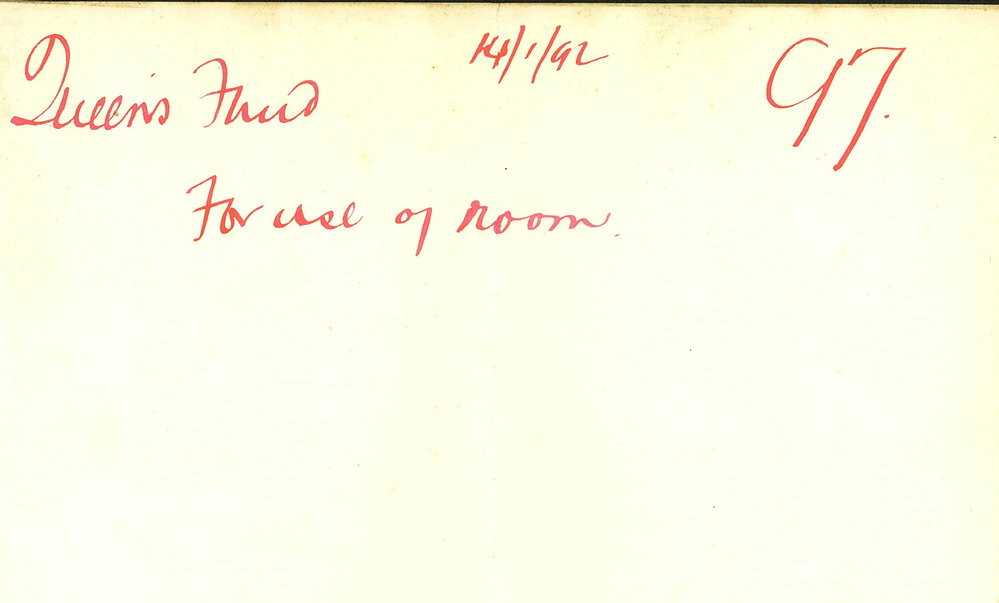 Queen's Fund 14/1/92 97.
For use of room.